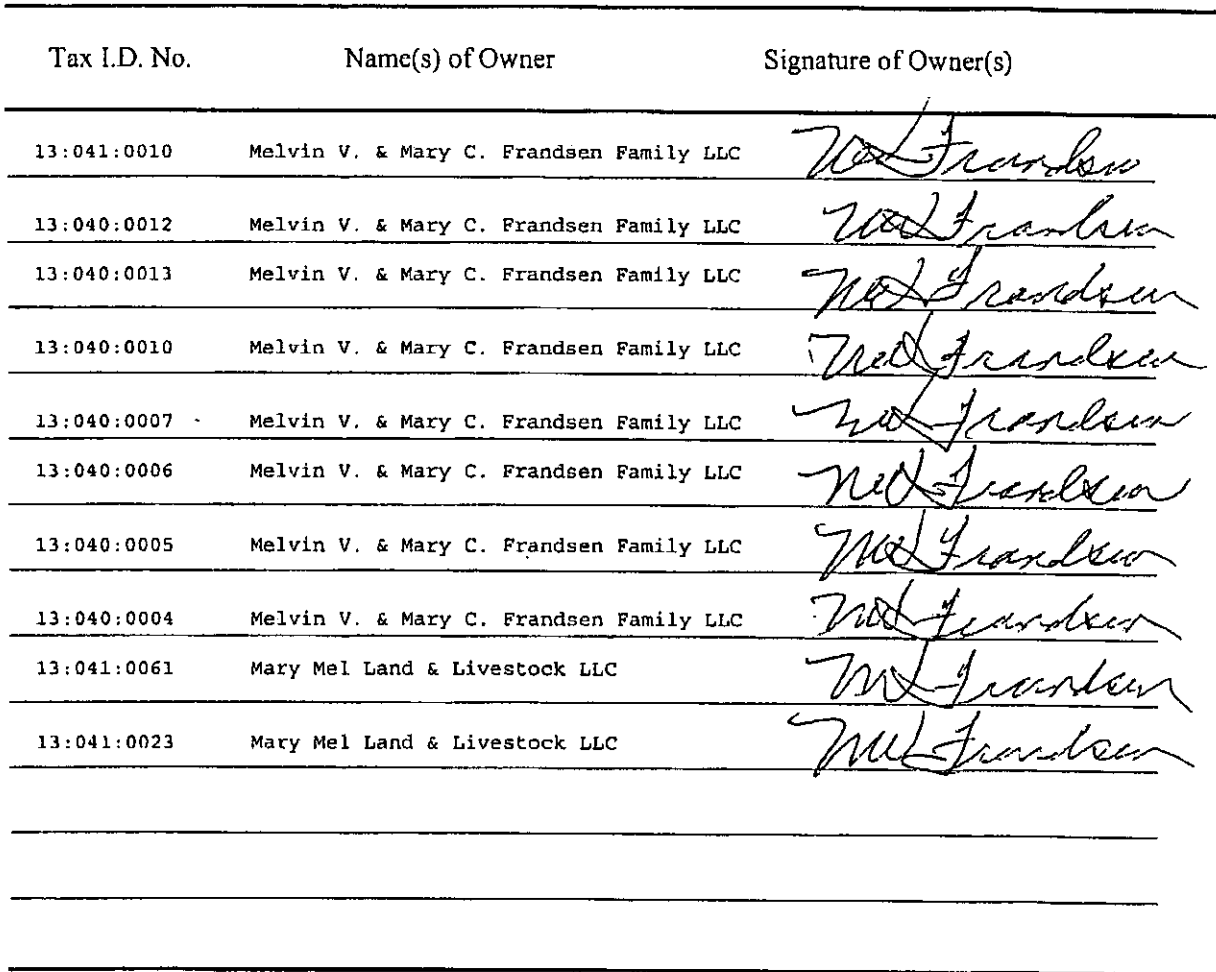 Tax I.D. No. Name(s) of Owner Signature of Owner(s)
13:041:0010 Melvin V. & Mary C. Frandsen Family LLC Frandsen
13:040:0012 Melvin V. & Mary C. Frandsen Family LLC Frandsen
13:040:0013 Melvin V. & Mary C. Frandsen Family LLC Frandsen
13:040:0010 Melvin V. & Mary C. Frandsen Family LLC Frandsen
13:040:0007 Melvin V. & Mary C. Frandsen Family LLC Frandsen
13:040:0006 Melvin V. & Mary C. Frandsen Family LLC Frandsen
13:040:0005 Melvin V. & Mary C. Frandsen Family LLC Frandsen
13:040:0004 Melvin V. & Mary C. Frandsen Family LLC Frandsen
13:041:0061 Mary Mel Land & Livestock LLC Frandsen
13:041:0023 Mary Mel Land & Livestock LLC Frandsen